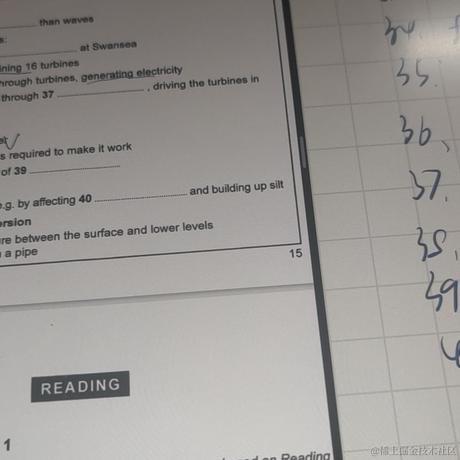 than waves
s:
at Swansea
ining 16 turbines
hrough turbines, generating electricity
through 37 ____________ , driving the turbines in
s required to make it work
of 39 ____________
e.g. by affecting 40 ____________ and building up silt
ersion
re between the surface and lower levels
a pipe
15
READING
1
on Reading
34.
35.
36、
37.
38.
39
@稀土掘金技术社区